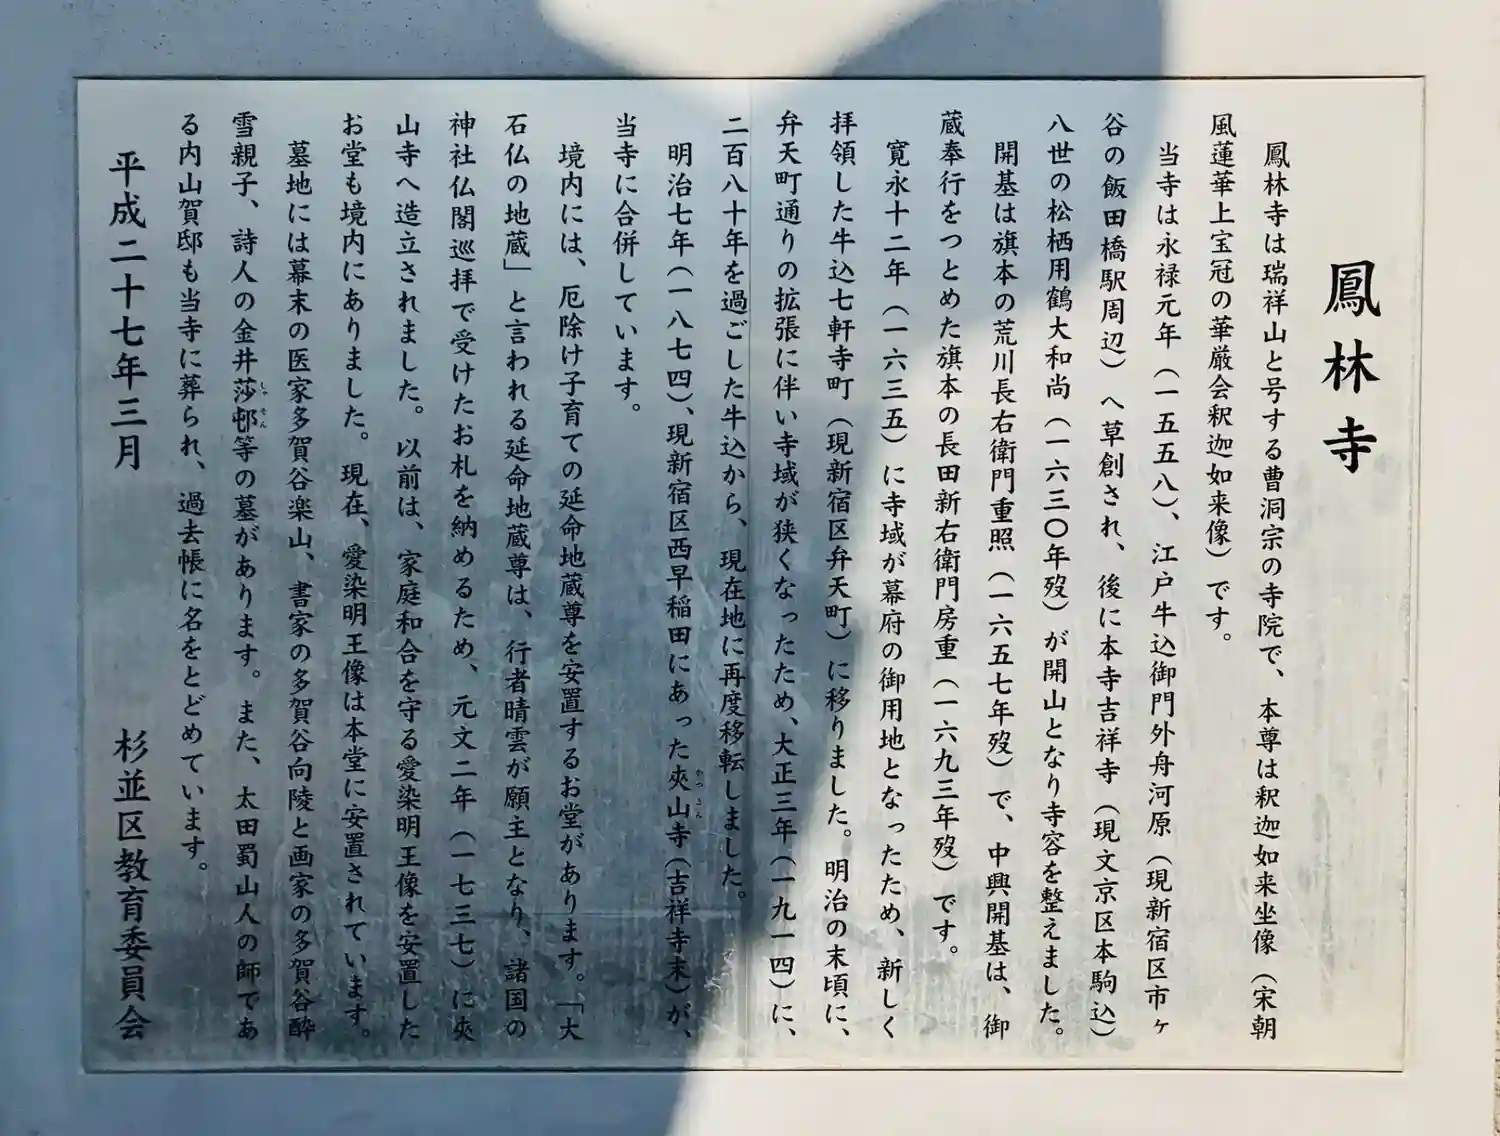 鳳林寺
鳳林寺は瑞祥山と号する曹洞宗の寺院で、本尊は釈迦如来坐像（宋朝
風蓮華上宝冠の華厳会釈迦如来像）です。
当寺は永禄元年（一五五八）、江戸牛込御門外舟河原（現新宿区市ヶ
谷の飯田橋駅周辺）へ草創され、後に本寺吉祥寺（現文京区本駒込）
八世の松栖用鶴大和尚（一六三〇年歿）が開山となり寺容を整えました。
開基は旗本の荒川長右衛門重照（一六五七年歿）で、中興開基は、御
蔵奉行をつとめた旗本の長田新右衛門房重（一六九三年歿）です。
寛永十二年（一六三五）に寺域が幕府の御用地となったため、新しく
拝領した牛込七軒寺町（現新宿区弁天町）に移りました。明治の末頃に、
弁天町通りの拡張に伴い寺域が狭くなったため、大正三年（一九一四）に、
二百八十年を過ごした牛込から、現在地に再度移転しました。
明治七年（一八七四）、現新宿区西早稲田にあった夾山寺（吉祥寺末）が、
かつさん
当寺に合併しています。
境内には、厄除け子育ての延命地蔵尊を安置するお堂があります。「大
石仏の地蔵」と言われる延命地蔵尊は、行者晴雲が願主となり、諸国の
神社仏閣巡拝で受けたお札を納めるため、元文二年（一七三七）に夾
山寺へ造立されました。以前は、家庭和合を守る愛染明王像を安置した
お堂も境内にありました。現在、愛染明王像は本堂に安置されています。
墓地には幕末の医家多賀谷楽山、書家の多賀谷向陵と画家の多賀谷酔
雪親子、詩人の金井莎邨等の墓があります。また、太田蜀山人の師であ
しゃそん
る内山賀邸も当寺に葬られ、過去帳に名をとどめています。
平成二十七年三月
杉並区教育委員会